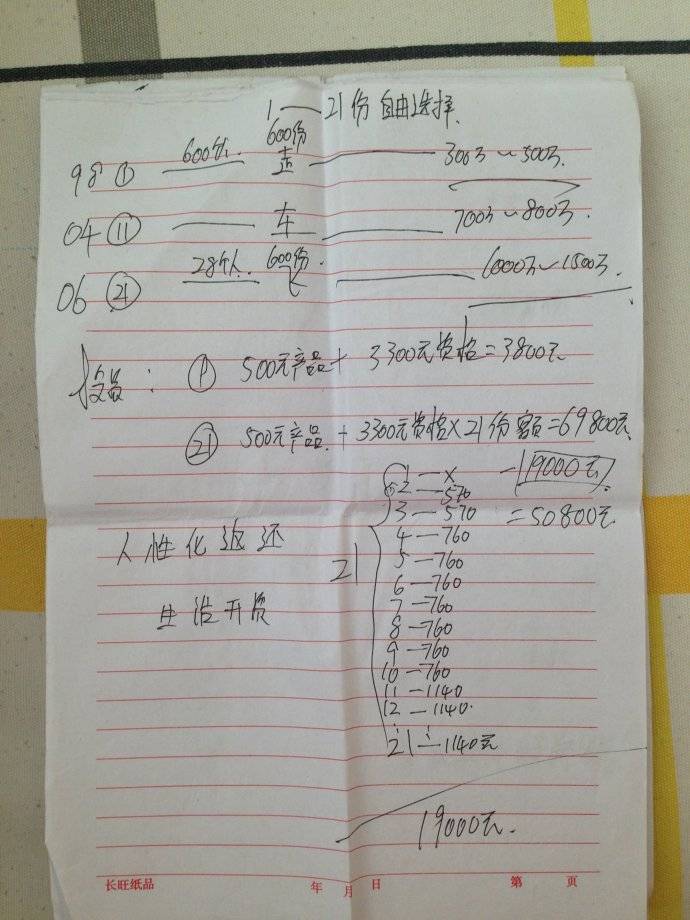 1 — 21份 自由选择
98 ① 600份 600份 走 — 300万~500万
04 ⑪ — 车 — 700万~800万.
06 ㉑ 28个人. 600份. 飞 — 6000万~1500万.
投资: ① 500元产品 + 3300元资格=3800元
㉑ 500元产品. + 3300元资格×21份额=69800元
1—X
-19000元
2—570
3—570
=50800元
4—760
人性化返还
21
5—760
6—760
生活开资
7—760
8—760
9—760
10—760
11—1140
12—1140.
21—1140元
19000元.
长旺纸品 年 月 日 第 页